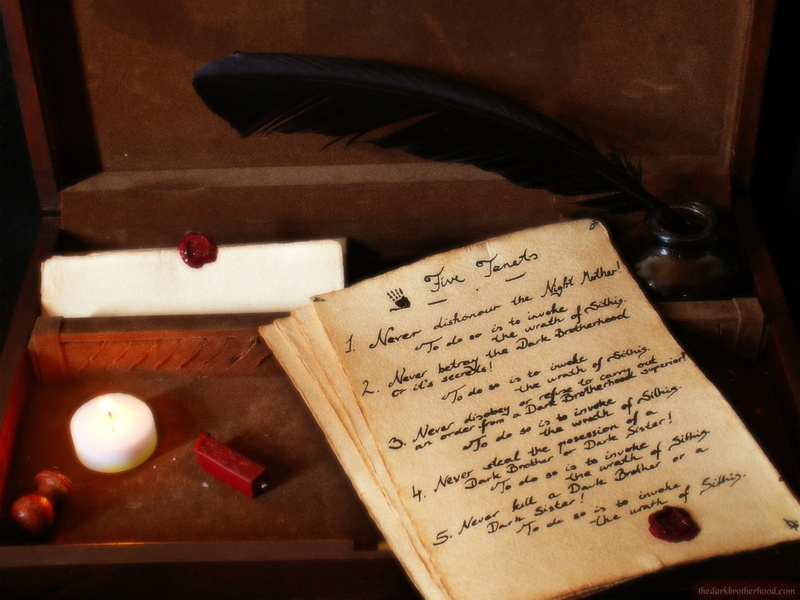 Five Tenets
1. Never dishonour the Night Mother!
To do so is to invoke
the wrath of Sithis.
2. Never betray the Dark Brotherhood
or it's secrets!
To do so is to invoke
the wrath of Sithis.
3. Never disobey or refuse to carry out
an order from a Dark Brotherhood superior!
To do so is to invoke
the wrath of Sithis.
4. Never steal the posession of a
Dark Brother or Dark Sister!
To do so is to invoke
the wrath of Sithis.
5. Never kill a Dark Brother or a
Dark Sister!
To do so is to invoke
the wrath of Sithis.
thedarkbrotherhood.com